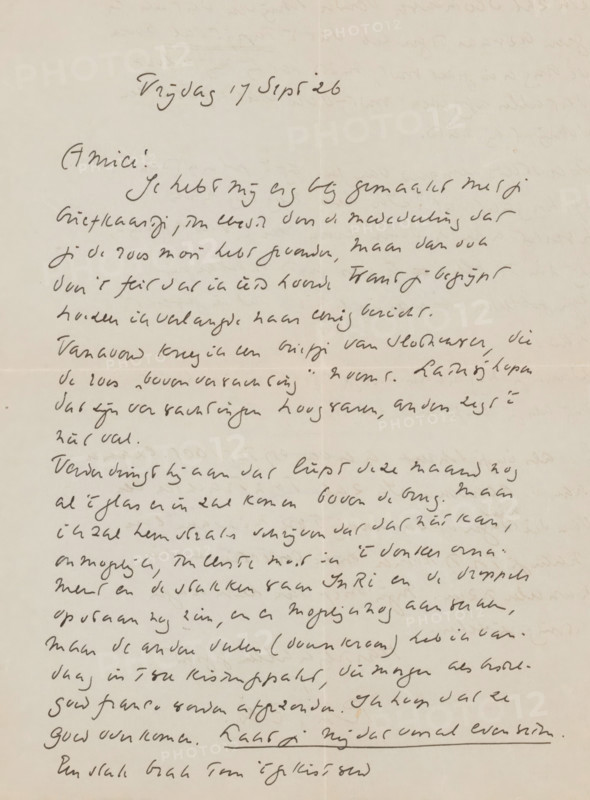 Vrijdag 17 Sept '26
Amice!
Je hebt mij erg blij gemaakt met je
briefkaartje, ten eerste door de mededeeling dat
je de roos mooi hebt gevonden, maar dan ook
door 't feit dat ik iets hoorde. Want je begrijpt
hoezeer ik verlangde naar eenig bericht.
Vanavond kreeg ik een briefje van, die
de roos „boven verwachting" noemt. Laten wij hopen
dat zijn verwachtingen hoog waren, anders zegt 't
niet veel.
Verder dringt hij aan dat liefst deze maand nog
al 't glas er in zal komen boven de brug. Maar
ik zal hem straks schrijven dat dat niet kan,
onmogelijk, ten eerste moet ik 't donker orna-
ment en de stukken van INRI en de droppels
op staan nog zien, en er mogelijk nog aan werken,
maar de andere deelen (doornkroon) heb ik van-
daag in twee kisten gepakt, die morgen als bestel-
goed franco worden afgezonden. Ik hoop dat ze
goed overkomen. Laat je mij dat vooral even weten.
Een stuk brak toen 't gekist werd
PHOTO12